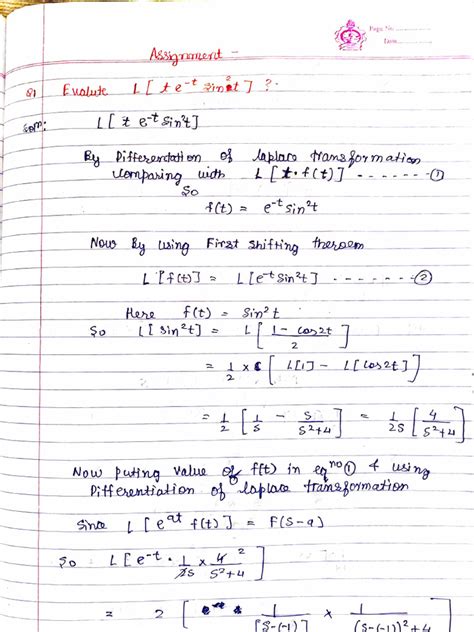 Page No.
Date
Assignment -
Q1 Evalute L[ t e^-t sin^2t] ?.
Som: L[ t e^-t sin^2t]
By Differentation of laplace transformation
Comparing with L[t·f(t)] ------- ①
So
f(t) = e^-t sin^2t
Now By using First shifting theroem
L[f(t)] = L[e^-t sin^2t] ------- ②
Here f(t) = sin^2t
So L[sin^2t] = L[(1 - cos2t)/2]
= 1/2 × [L[1] - L[cos2t]]
= 1/2 [1/s - s/(s^2+4)] = 1/2s [4/(s^2+4)]
Now puting value of f(t) in eq^no ① & using
Differentiation of laplace transformation
Since L[e^at f(t)] = F(s-a)
So L[e^-t · 1/2s × 4^2/(s^2+4)]
= 2 [ 1/[s-(-1)] × 1/((s-(-1))^2+4)